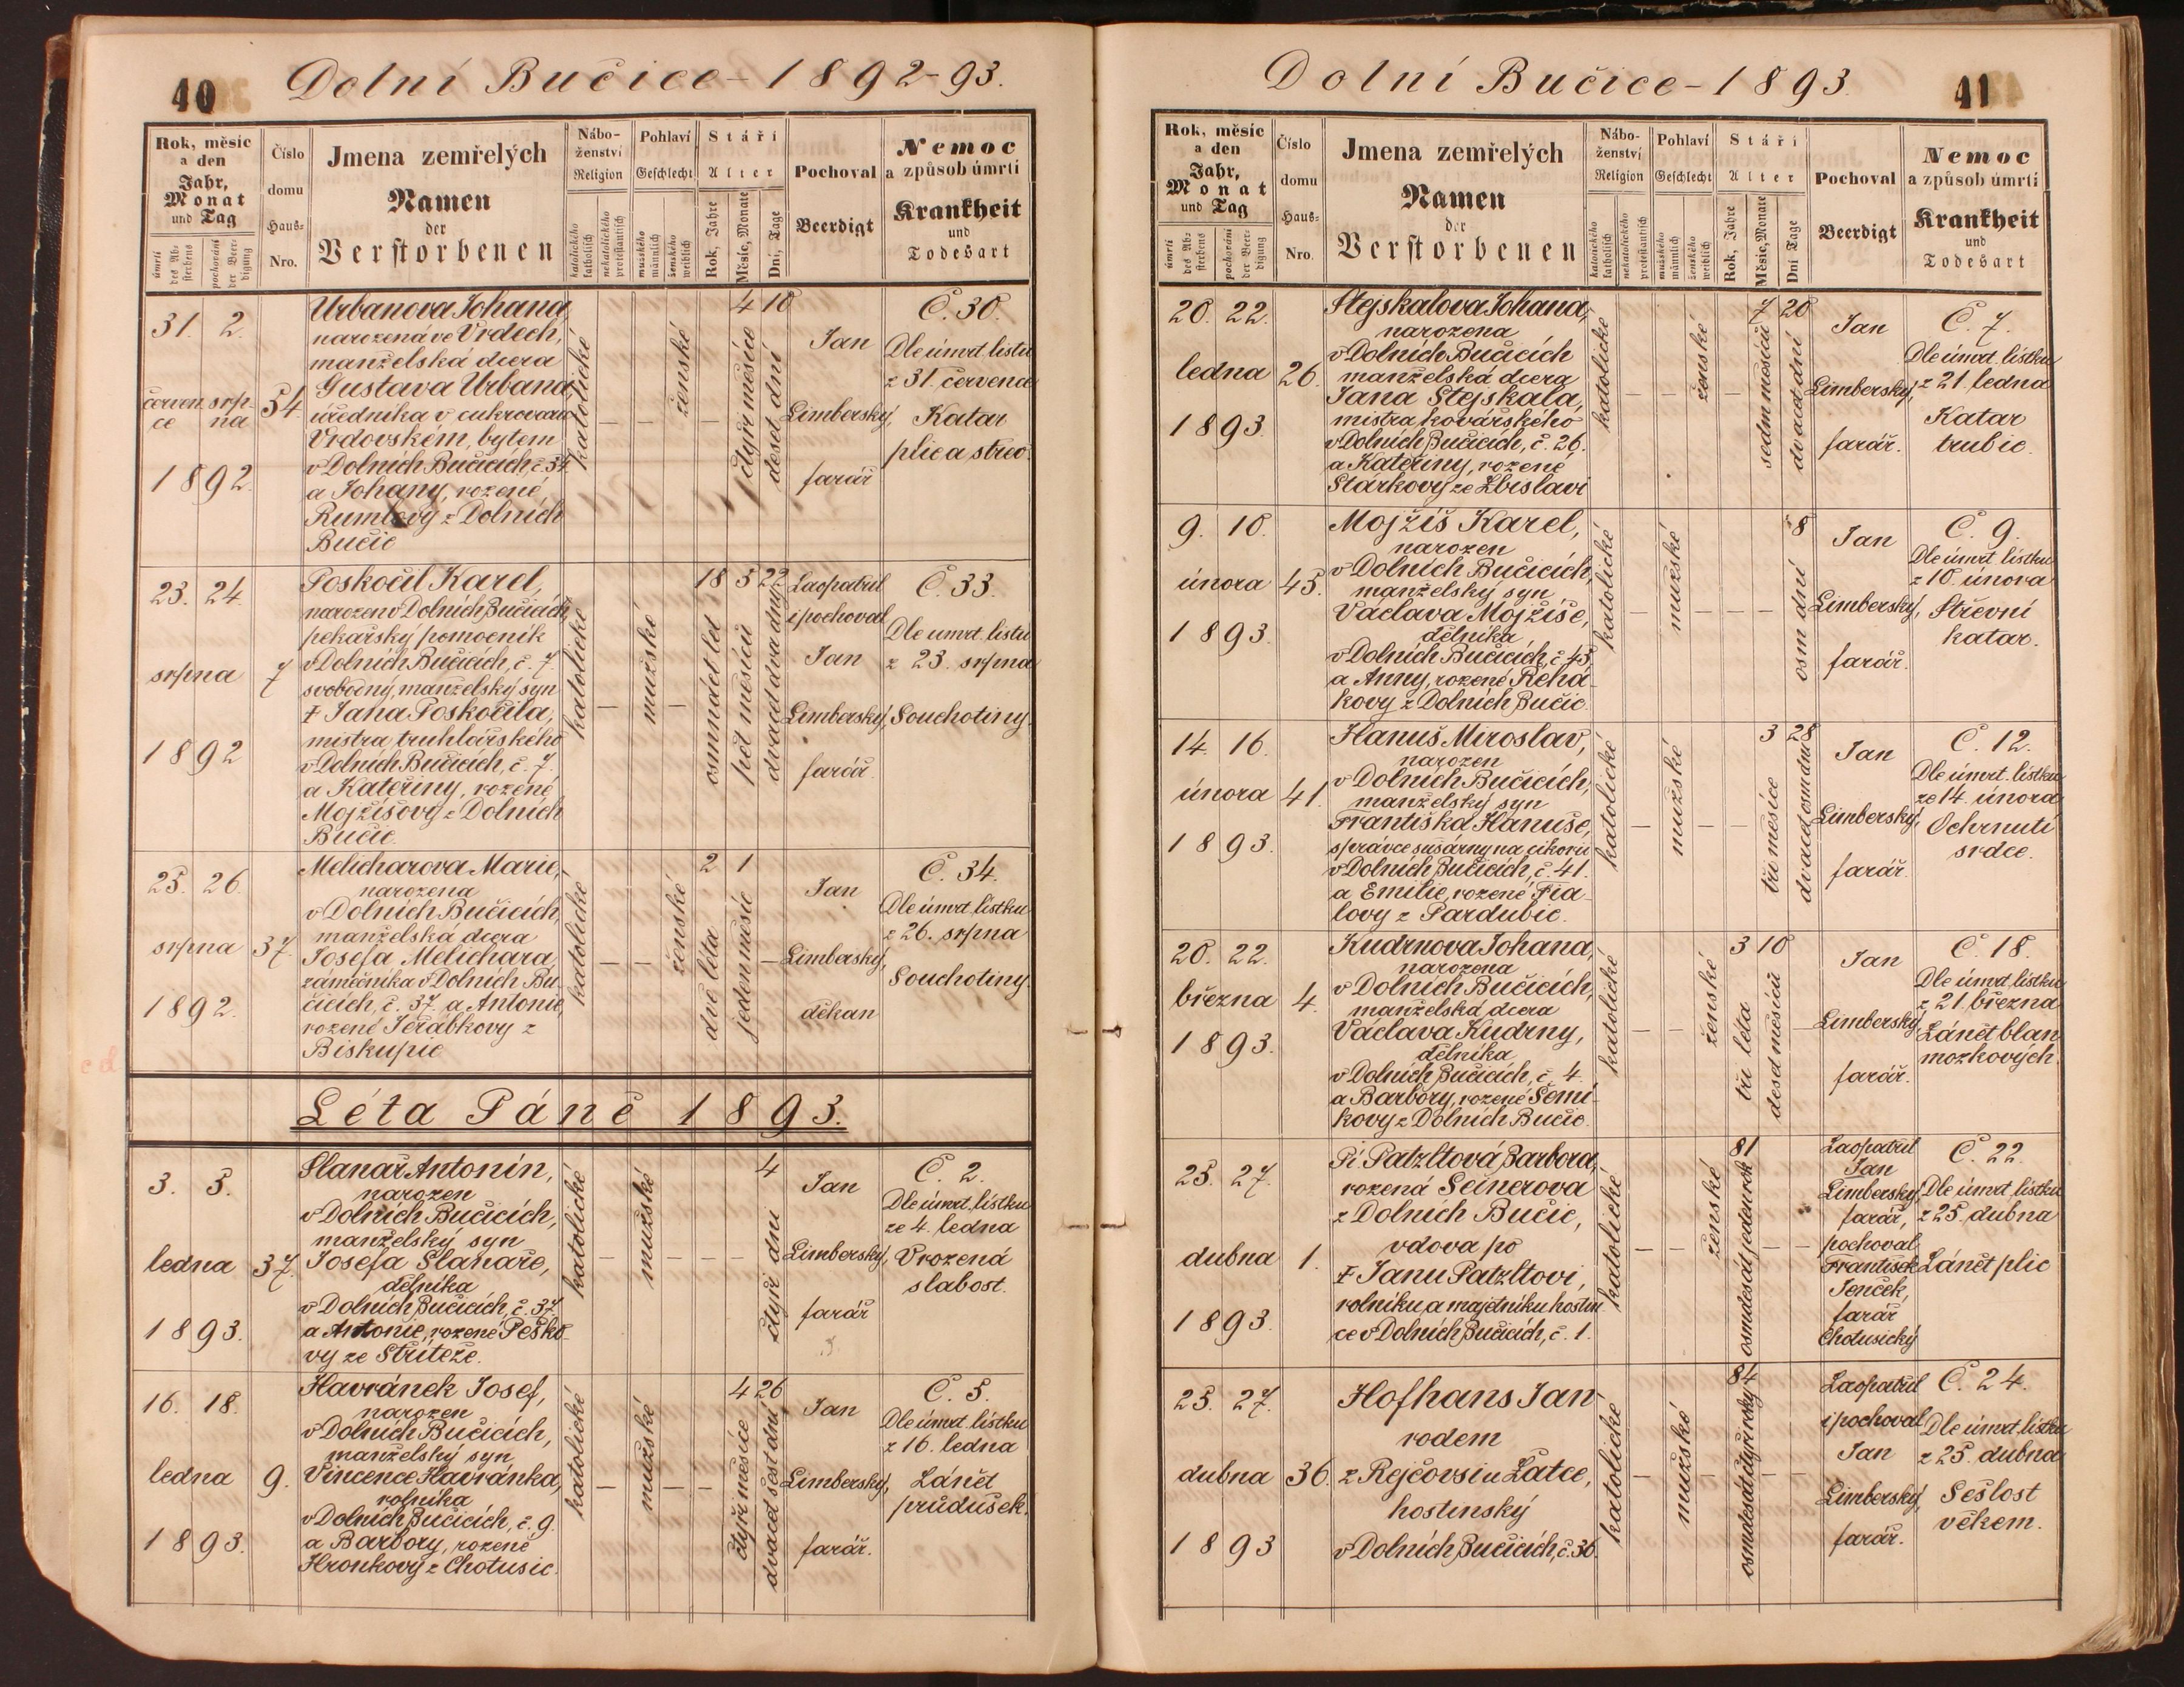 40
Dolní Bučice - 1892-93.
Rok, měsíc a den
Jahr, Monat und Tag
úmrtí des Absterbens
pochování der Beerdigung
Číslo domu
Haus-Nro.
Jmena zemřelých
Namen
der
Verstorbenen
Náboženství
Religion
katolického katholisch
nekatolického protestantisch
Pohlaví
Geschlecht
mužského männlich
ženského weiblich
Stáří
Alter
Rok, Jahre
Měsíc, Monate
Dní, Tage
Pochoval
Beerdigt
Nemoc
a způsob úmrtí
Krankheit
und
Todesart
31. 2.
červen srp-
ce na
1892.
34
Urbanova Johana,
narozená ve Vrdech,
manželská dcera
Gustava Urbana,
úředníka v cukrovaru
Vrdovském, bytem
v Dolních Bučicích, č. 34.
a Johany, rozené
Rumlovy z Dolních
Bučic
katolické
ženské
4 10
čtyři měsíce
deset dní
Jan
Limberský,
farář
Č. 30.
Dle úmrt. listu
z 31. července
Katar
plic a střev.
23. 24.
srpna
1892
7
Poskočil Karel,
narozen v Dolních Bučicích,
pekařský pomocník
v Dolních Bučicích, č. 7.
svobodný, manželský syn
‡ Jana Poskočila,
mistra truhlářského
v Dolních Bučicích, č. 7.
a Kateřiny, rozené
Mojžíšovy z Dolních
Bučic.
katolické
mužské
18 5 22
osmnáct let
pět měsíců
dvacet dva dny
Zaopatřil
i pochoval
Jan
Limberský,
farář.
Č. 33.
Dle úmrt. listu
z 23. srpna
Souchotiny.
25. 26.
srpna
1892.
37.
Melicharova Marie,
narozena
v Dolních Bučicích,
manželská dcera
Josefa Melichara,
zámečníka v Dolních Bu-
čicích, č. 37. a Antonie,
rozené Jeřábkovy z
Biskupic
katolické
ženské
2 1
dvě léta
jeden měsíc
Jan
Limberský,
děkan
Č. 34.
Dle úmrt. lístku
z 26. srpna
Souchotiny.
Léta Páně 1893.
3. 5.
ledna
1893.
37.
Slanař Antonín,
narozen
v Dolních Bučicích,
manželský syn
Josefa Slanaře,
dělníka
v Dolních Bučicích, č. 37
a Antonie, rozené Peško-
vy ze Střiteže.
katolické
mužské
4
čtyři dni
Jan
Limberský,
farář
Č. 2.
Dle úmrt. lístku
ze 4. ledna
Vrozená
slabost.
16. 18.
ledna
1893.
9.
Havránek Josef,
narozen
v Dolních Bučicích,
manželský syn
Vincence Havránka,
rolníka
v Dolních Bučicích, č. 9.
a Barbory, rozené
Hronkovy z Chotusic.
katolické
mužské
4 26
čtyři měsíce
dvacet šest dnů
Jan
Limberský,
farář.
Č. 5.
Dle úmrt. lístku
z 16. ledna
Zánět
průdušek.
Dolní Bučice - 1893.
41
Rok, měsíc a den
Jahr, Monat und Tag
úmrtí des Absterbens
pochování der Beerdigung
Číslo domu
Haus-Nro.
Jmena zemřelých
Namen
der
Verstorbenen
Náboženství
Religion
katolického katholisch
nekatolického protestantisch
Pohlaví
Geschlecht
mužského männlich
ženského weiblich
Stáří
Alter
Rok, Jahre
Měsíc, Monate
Dní Tage
Pochoval
Beerdigt
Nemoc
a způsob úmrtí
Krankheit
und
Todesart
20. 22.
ledna
1893.
26.
Stejskalova Johana,
narozena
v Dolních Bučicích
manželská dcera
Jana Stejskala,
mistra kovářského
v Dolních Bučicích, č. 26.
a Kateřiny, rozené
Stárkovy ze Zbislavi
katolické
ženské
7 20
sedm měsíců
dvacet dní
Jan
Limberský,
farář.
Č. 7.
Dle úmrt. lístku
z 21. ledna
Katar
trubic.
9. 10.
února
1893.
45.
Mojžíš Karel,
narozen
v Dolních Bučicích,
manželský syn
Václava Mojžíše,
dělníka
v Dolních Bučicích, č. 45,
a Anny, rozené Řehá-
kovy z Dolních Bučic.
katolické
mužské
8
osm dní
Jan
Limberský,
farář.
Č. 9.
Dle úmrt. lístku
z 10. února
Střevní
katar.
14. 16.
února
1893.
41.
Hanuš Miroslav,
narozen
v Dolních Bučicích,
manželský syn
Františka Hanuše,
správce sušárny na cikorii
v Dolních Bučicích, č. 41.
a Emilie, rozené Fia-
lovy z Pardubic.
katolické
mužské
3 28
tři měsíce
dvacet osm dnů
Jan
Limberský,
farář.
Č. 12.
Dle úmrt. lístku
ze 14. února
Ochrnutí
srdce.
20. 22.
března
1893.
4.
Kudrnova Johana,
narozena
v Dolních Bučicích,
manželská dcera
Václava Kudrny,
dělníka
v Dolních Bučicích, č. 4.
a Barbory, rozené Semi-
kovy z Dolních Bučic.
katolické
ženské
3 10
tři léta
deset měsíců
Jan
Limberský,
farář.
Č. 18.
Dle úmrt. lístku
z 21. března
Zánět blan
mozkových.
25. 27.
dubna
1893.
1.
Pí. Patzltová Barbora,
rozená Seinerova
z Dolních Bučic,
vdova po
‡ Janu Patzltovi,
rolníku a majetníku hostin
ce v Dolních Bučicích, č. 1.
katolické
ženské
81
osmdesát jeden rok
Zaopatřil
Jan
Limberský,
farář,
pochoval
František
Jenček,
farář
Chotusický
Č. 22.
Dle úmrt. lístku
z 25. dubna
Zánět plic
25. 27.
dubna
1893
36.
Hofhans Jan
rodem
z Rejčovsi u Žatce,
hostinský
v Dolních Bučicích, č. 36.
katolické
mužské
84
osmdesát čtyři roky
Zaopatřil
i pochoval
Jan
Limberský
farář.
Č. 24.
Dle úmrt. lístku
z 25. dubna
Sešlost
věkem.